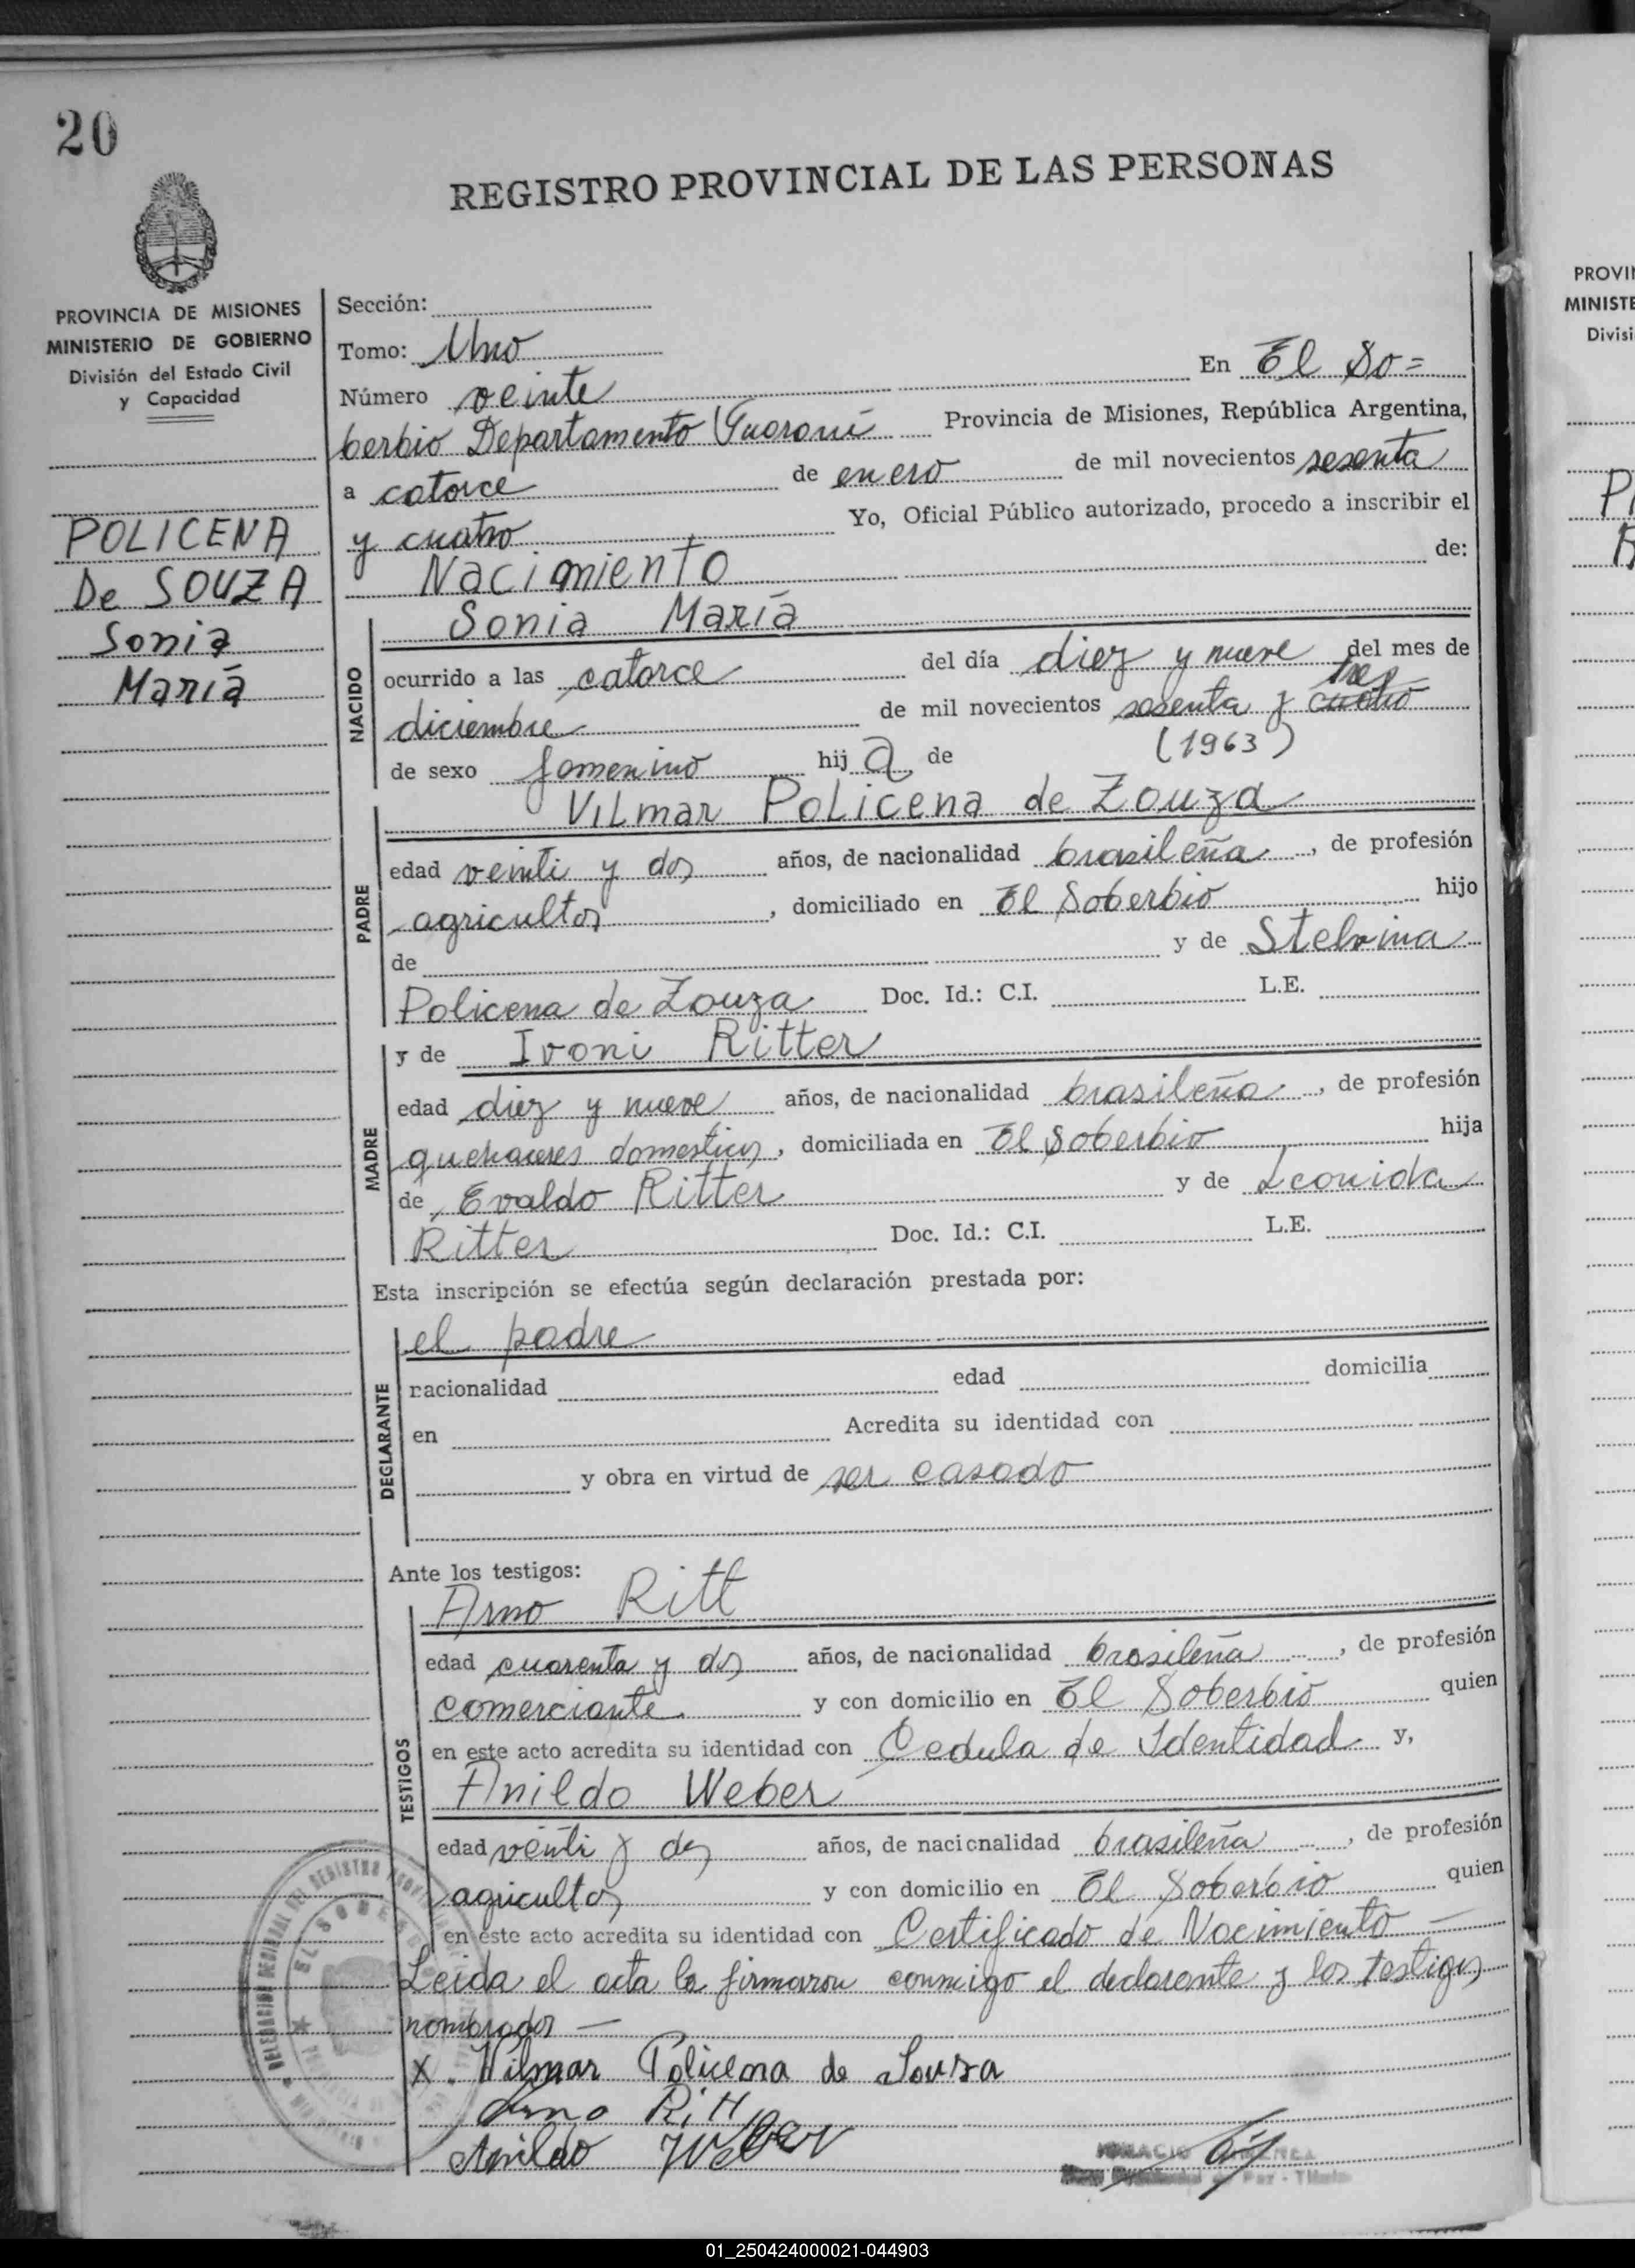 20
REGISTRO PROVINCIAL DE LAS PERSONAS
PROVINCIA DE MISIONES
MINISTERIO DE GOBIERNO
División del Estado Civil
y Capacidad
POLICENA
De SOUZA
Sonia
María
Sección:
Tomo: Uno
Número veinte En El So=
berbio Departamento Guaraní Provincia de Misiones, República Argentina,
a catorce de enero de mil novecientos sesenta
y cuatro Yo, Oficial Público autorizado, procedo a inscribir el
Nacimiento de:
Sonia María
NACIDO
ocurrido a las catorce del día diez y nueve del mes de
tres
diciembre de mil novecientos sesenta y cuatro
(1963)
de sexo femenino hija de
Vilmar Policena de Zouza
PADRE
edad veinti y dos años, de nacionalidad brasileña, de profesión
agricultor, domiciliado en El Soberbio hijo
de y de Stelvina
Policena de Zouza Doc. Id.: C.I. L.E.
y de Ivoni Ritter
MADRE
edad diez y nueve años, de nacionalidad brasileña, de profesión
quehaceres domesticos, domiciliada en El Soberbio hija
de Evaldo Ritter y de Leonida
Ritter Doc. Id.: C.I. L.E.
Esta inscripción se efectúa según declaración prestada por:
el padre
DEGLARANTE
racionalidad edad domicilia
en Acredita su identidad con
y obra en virtud de ser casado
Ante los testigos:
Arno Ritt
TESTIGOS
edad cuarenta y dos años, de nacionalidad brasileña, de profesión
comerciante y con domicilio en El Soberbio quien
en este acto acredita su identidad con Cedula de Identidad y,
Anildo Weber
edad veinti y dos años, de nacicnalidad brasileña, de profesión
agricultor y con domicilio en El Soberbio quien
en este acto acredita su identidad con Certificado de Nacimiento —
Leida el acta la firmaron conmigo el declarante y los testigos
nombrados —
X. Vilmar Policena de Souza
Arno Ritt
Anildo Weber
EL SOBERBIO
PROVIN
MINISTE
Divisi
01_250424000021-044903